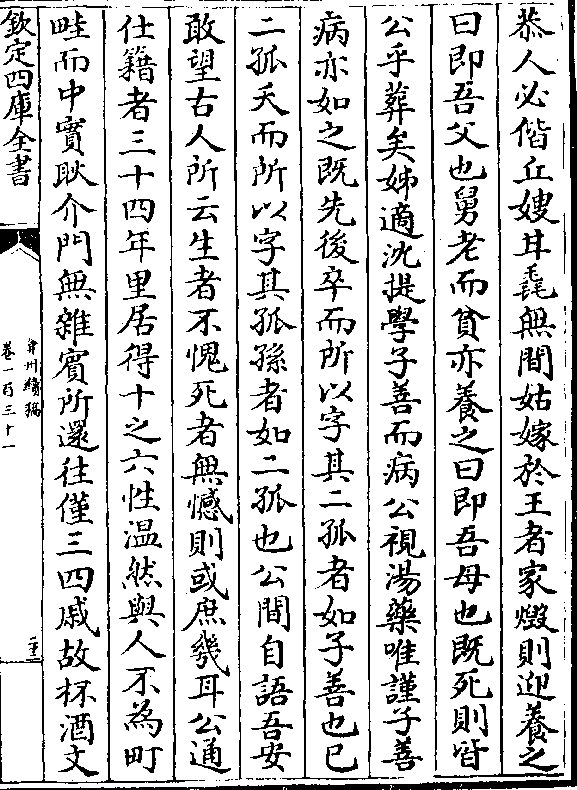 恭人必偕丘嫂甘毳無間姑嫁於王者家燬則迎養之
曰即吾父也舅老而貧亦養之曰即吾母也既死則皆
公乎葬矣姊適沈提學子善而病公視湯藥唯謹子善
病亦如之既先後卒而所以字其二孤者如子善也已
二孤夭而所以字其孤孫者如二孤也公間自語吾安
敢望古人所云生者不愧死者無憾則或庶幾耳公通
仕籍者三十四年里居得十之六性溫然與人不為町
畦而中實耿介門無雜賓所還往僅三四戚故杯酒文
欽定四庫全書
弇州續稿
卷一百三十一
二十二